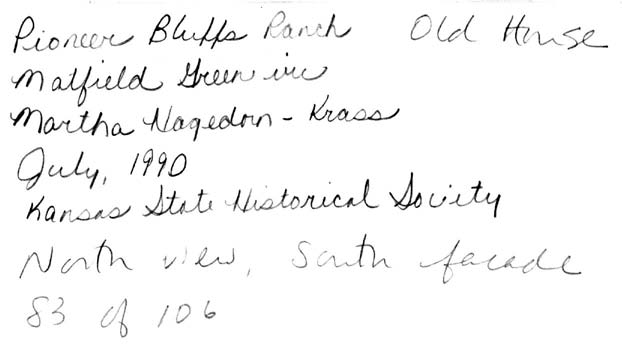 Pioneer Bluffs Ranch Old House
Matfield Green vic
Martha Hagedorn - Krass
July, 1990
Kansas State Historical Society
North view, South facade
83 of 106